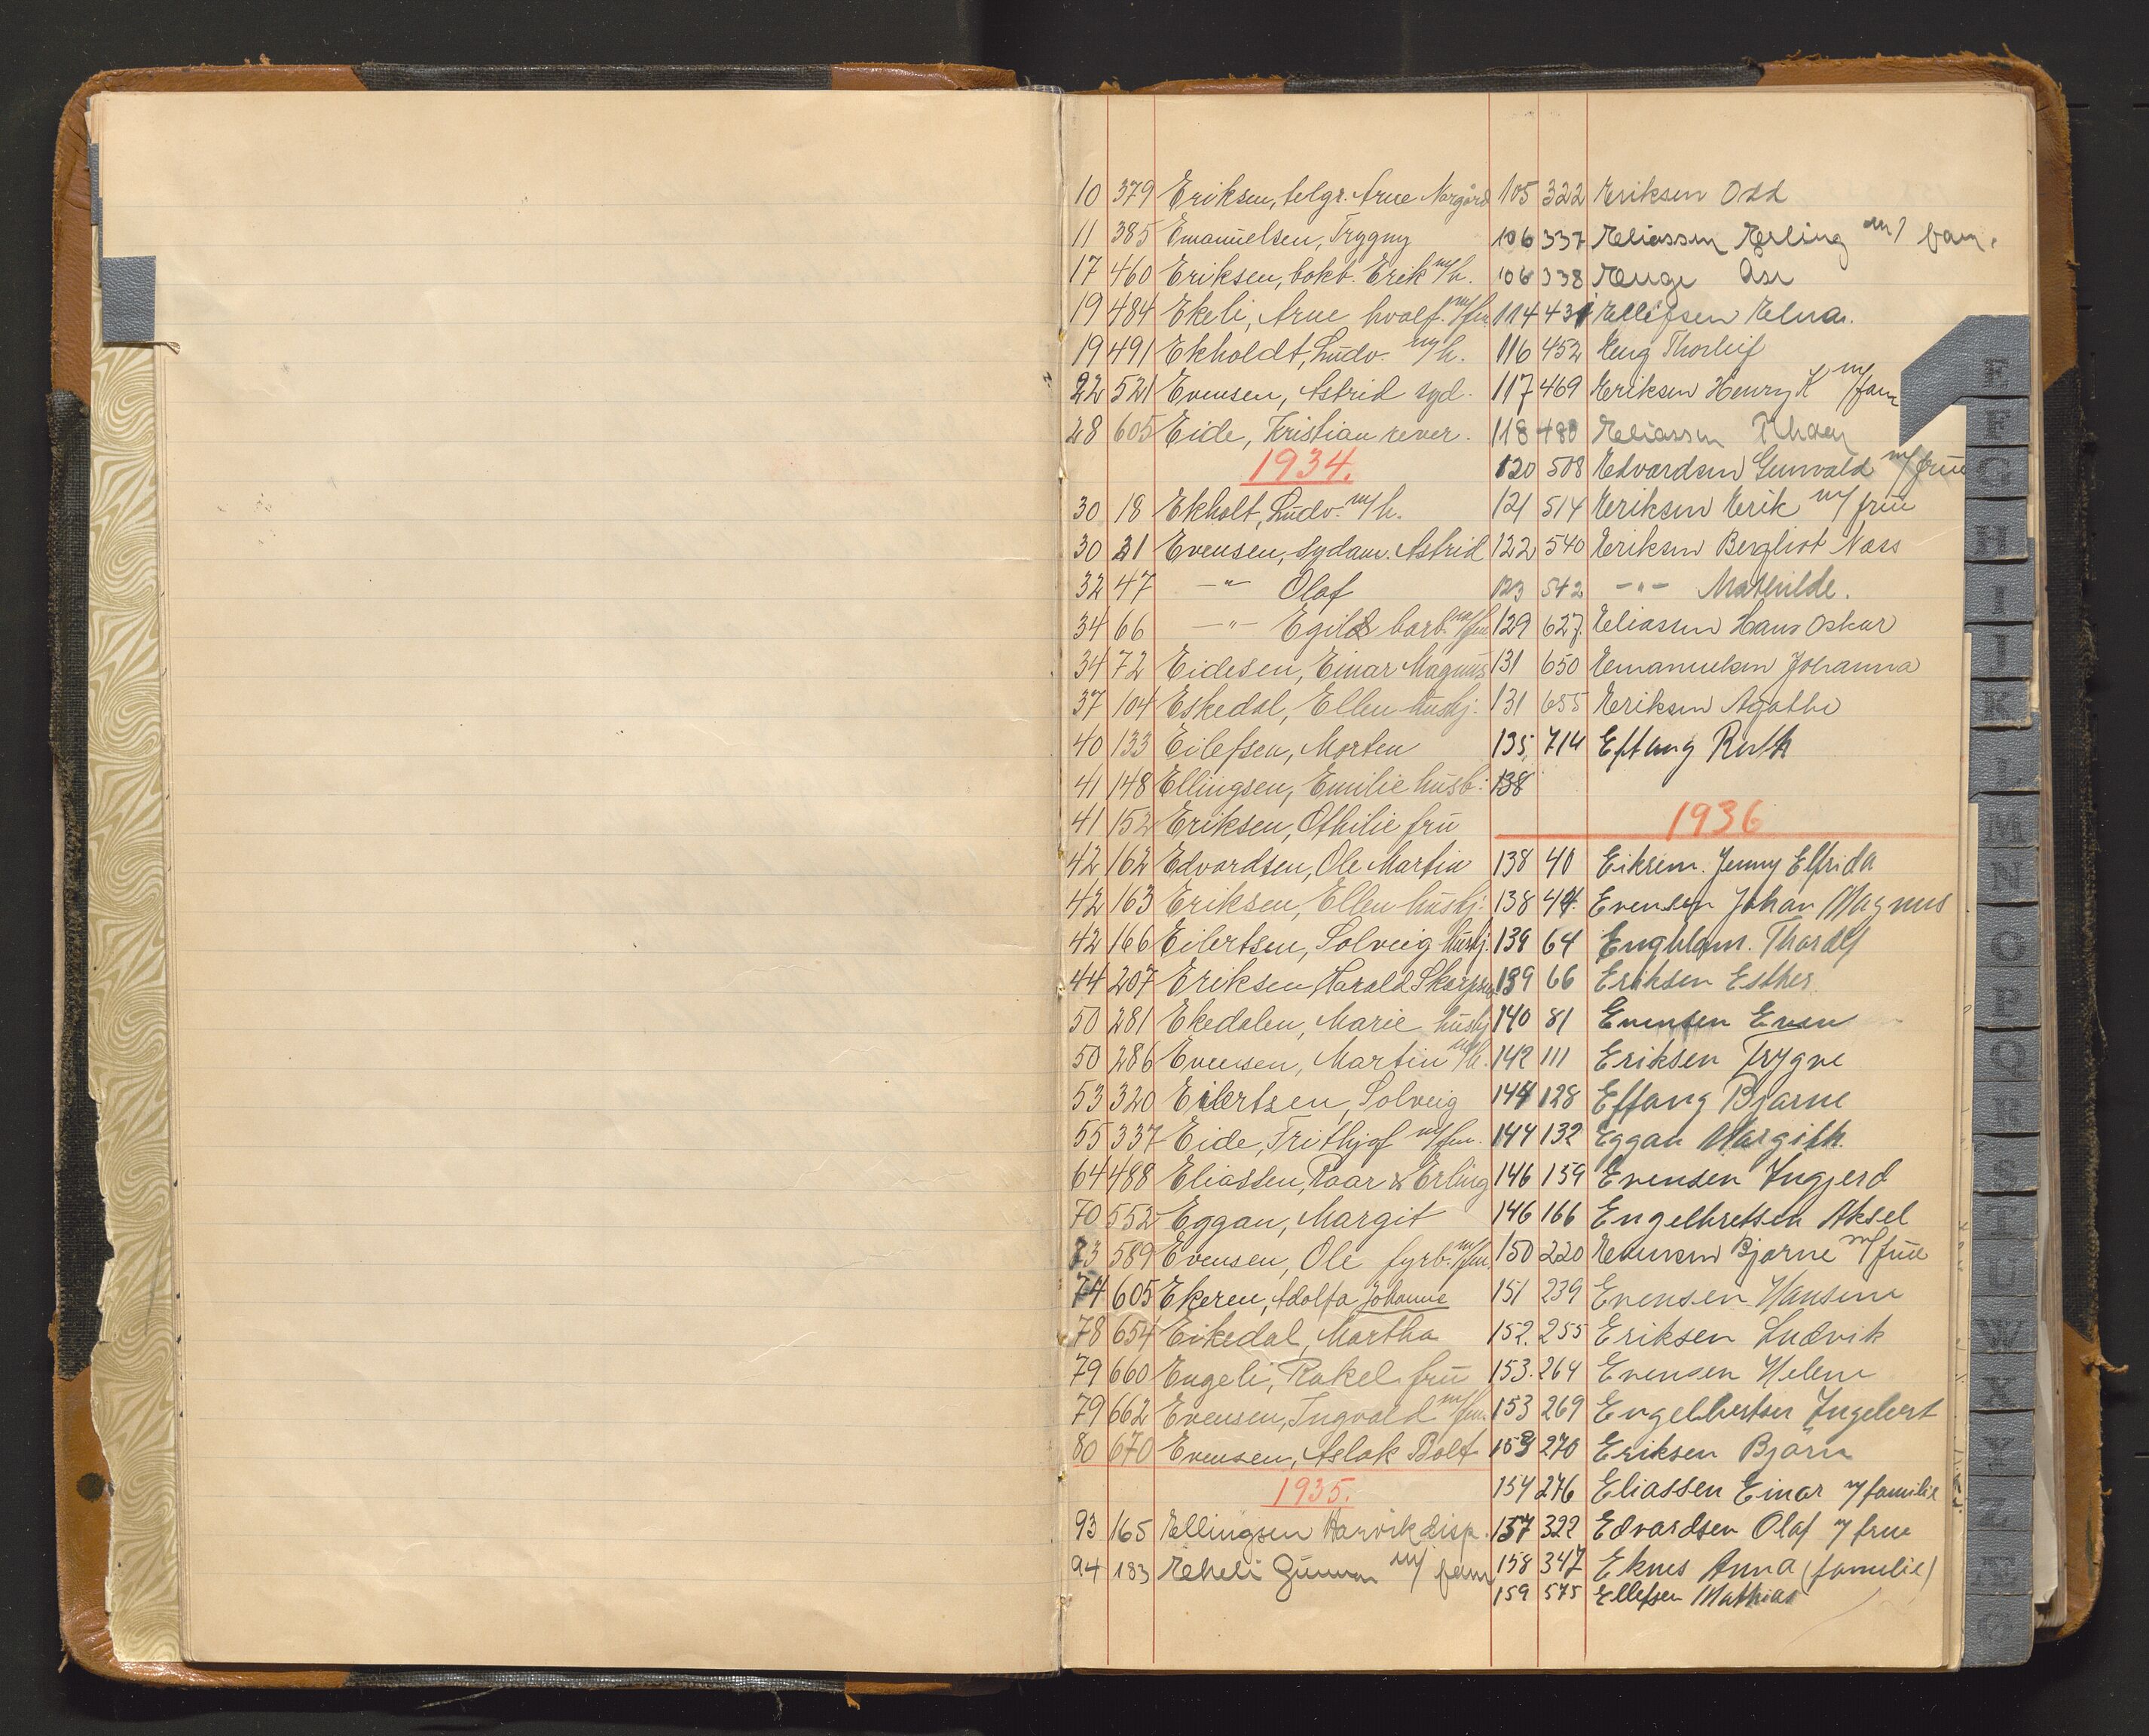 10 379 Eriksen, telgr. Arne Norgård
11 385 Emanuelsen, Trygny
17 460 Eriksen, bokb. Erik m/h.
19 484 Ekeli, Arne hvalf. m/fm
19 491 Ekholdt, Ludv. m/h.
22 521 Evensen, Astrid syd.
28 605 Eide, Kristian rever.
1934.
30 18 Ekholt, Ludv. m/h.
30 21 Evensen, sydam. Astrid
32 47 —"— Olaf
34 66 —"— Egil barb. m/fm
34 72 Eidesen, Einar Magnus
37 104 Eskedal, Ellen hushj.
40 133 Eilefsen, Morten
41 148 Ellingsen, Emilie husb.
41 152 Eriksen, Othilie fru
42 162 Edvardsen, Ole Martin
42 163 Eriksen, Ellen hushj.
42 166 Eilertsen, Solveig hushj.
44 207 Eriksen, Harald
50 281 Ekedalen, Marie hushj
50 286 Evensen, Martin m/h.
53 320 Eilertsen, Solveig
55 337 Eide, Frithjof m/fm.
64 488 Eliassen, Roar & Erling
70 552 Eggan, Margit
73 589 Evensen, Ole fyrb. m/fm.
74 605 Ekeren, Adolfa Johanne
78 654 Eikedal, Martha
79 660 Engeli, Rakel fru
79 662 Evensen, Ingvald m/fm.
80 670 Evensen, Aslak Bolt
1935.
93 165 Ellingsen Harvik disp.
94 183 Ekeli Gunnar m/ fam
105 322 Eriksen Odd
106 337 Eliassen Erling m/ fam.
106 338 Enge Åse
114 431 Ellifsen Elna.
116 452 Eng Thorleif
117 469 Eriksen Henry K m/fam
118 480 Eliassen
120 508 Edvardsen Gunvald m/frue
121 514 Eriksen Erik m/ frue
122 540 Eriksen Bergliot Næss
123 542 —"— Mathilde.
129 627. Eliassen Hans Oskar
131 650 Emanuelsen Johanna
131 655 Eriksen Agathe
135. 714 Eftang Ruth
138
1936
138 40 Eiksem. Jenny Elfrida
138 44. Evensen Johan Magnus
139 64 Thoralf
139 66 Eriksen Esther
140 81 Evensen Even
142 111 Eriksen Trygve
144 128 Eftang Bjarne
144 132 Eggan Margith.
146 159 Evensen Ingjerd
146 166 Engelbretsen Aksel
150 220 Evensen Bjarne m/frue
151 239 Evensen Hansine
152. 255 Eriksen Ludvik
153. 264 Evensen Helene
153 269 Engelbertsen Ingebert
153 270 Eriksen Bjarne
154 276 Eliassen Einar m/familie
157 322 Edvardsen Olaf m/ frue
158 347 Eknes Anna (familie)
159 575 Ellefsen Mathias
E
F
G
H
I
J
K
L
M
N
O
P
Q
R
S
T
U
W
X
Y
Z
Æ
Ø